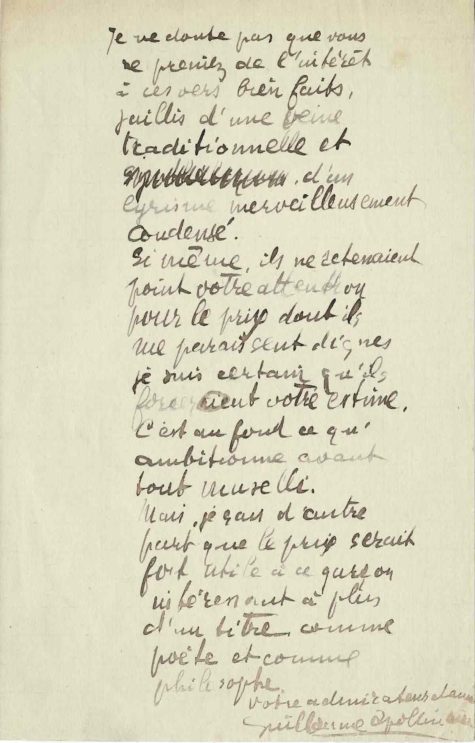 Je ne doute pas que vous
ne preniez de l'intérêt
à ces vers bien faits,
jaillis d'une veine
traditionnelle et
d'un
lyrisme merveilleusement
condensé.
Si même, ils ne retenaient
point votre attention
pour le prix dont ils
me paraissent dignes
je suis certain qu'ils
forceraient votre estime.
C'est au fond ce qu'
ambitionne avant
tout Muselli.
Mais, je sais d'autre
part que le prix serait
fort utile à ce garçon
intéressant à plus
d'un titre comme
poète et comme
philosophe.
votre admirateur et ami
Guillaume Apollinaire